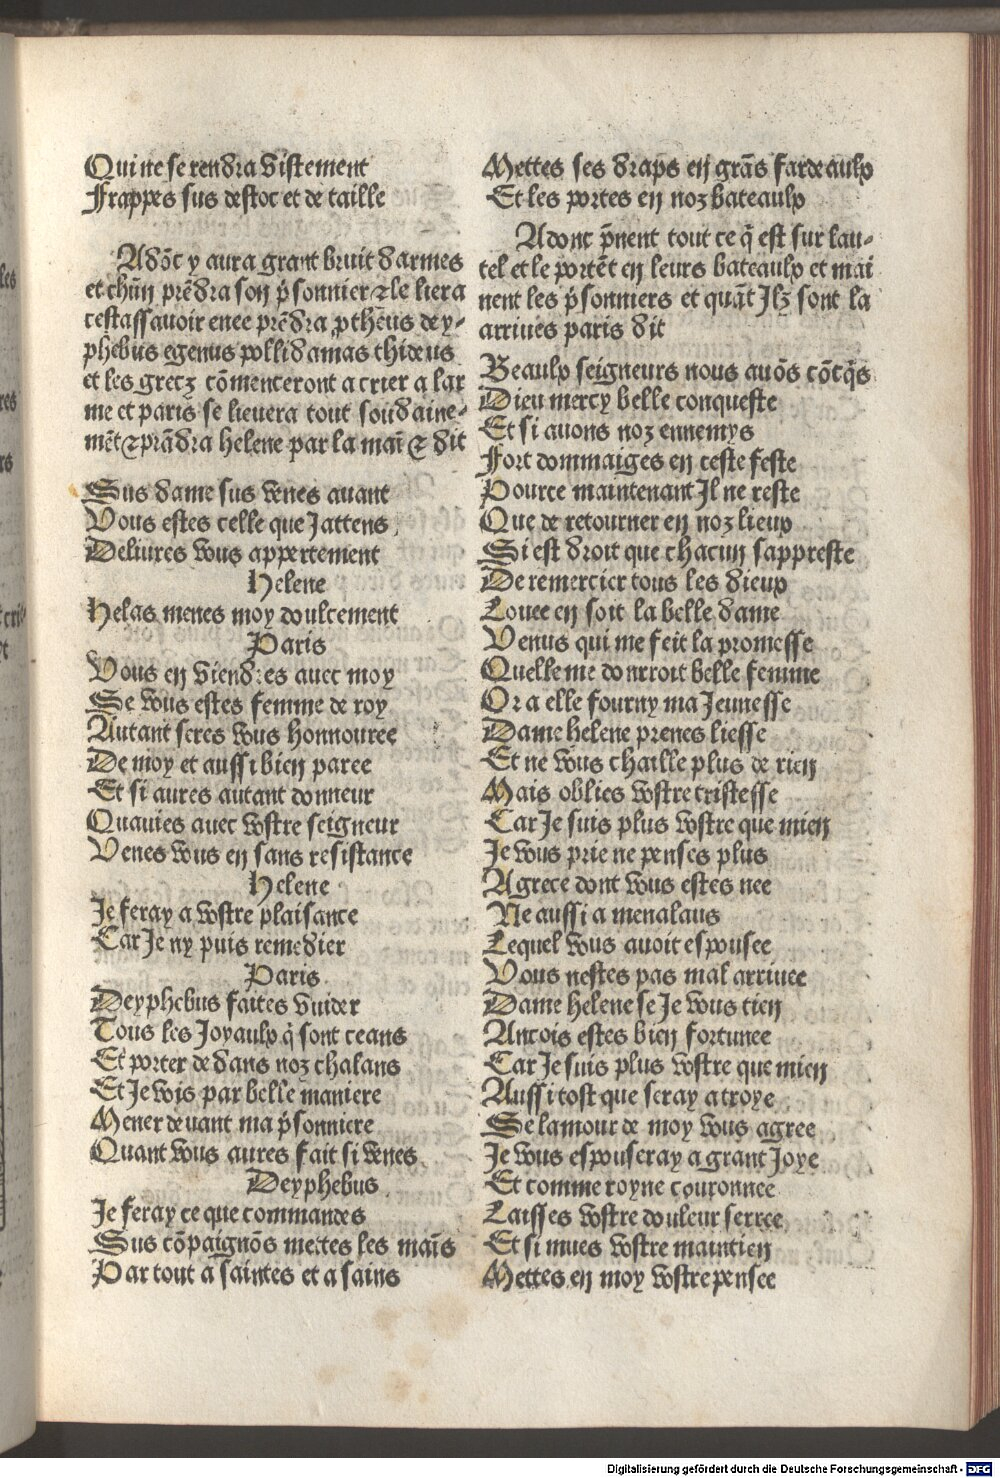 Qui ne se rendra vistement
Frappes sus destoc et de taille
Adōc y aura grant bruit darmes
et chūn prēdra son p̄sonnier ⁊ le liera
cestassauoir enee prēdra ꝓtheus dey-
phebus egenus pollidamas thideus
et les grecz cōmenceront a crier a lar
me et paris se lieuera tout soudaine-
mēt ⁊ prādra helene par la maī ⁊ dit
Sus dame sus venes auant
Vous estes celle que Jattens
Deliures vous appertement
Helene
Helas menes moy doulcement
Paris
Vous en viendres auec moy
Se vous estes femme de roy
Autant seres vous honnouree
De moy et aussi bien paree
Et si aures autant donneur
Quauies auec vostre seigneur
Venes vous en sans resistance
Helene
Je feray a vostre plaisance
Car Je ny puis remedier
Paris
Deyphebus faites vuider
Tous les Joyaulx q̄ sont ceans
Et porter dedans noz chalans
Et Je vois par belle maniere
Mener deuant ma p̄sonniere
Quant vous aures fait si venes
Deyphebus
Je feray ce que commandes
Sus cōpaignōs mettes les maīs
Par tout a saintes et a sains
Mettes ses draps en grās fardeaulx
Et les portes en noz bateaulx
Adonc p̄nent tout ce q̄ est sur lau-
tel et le portēt en leurs bateaulx et mai
nent les p̄sonniers et quāt Jlz sont la
arriues paris dit
Beaulx seigneurs nous auōs cōq̄s
Dieu mercy belle conqueste
Et si auons noz ennemys
Fort dommaiges en ceste feste
Pource maintenant Jl ne reste
Que de retourner en noz lieux
Si est droit que chacun sappreste
De remercier tous les dieux
Louee en soit la belle dame
Venus qui me feit la promesse
Quelle me donrroit belle femme
Or a elle fourny ma Jeunesse
Dame helene prenes liesse
Et ne vous chaille plus de rien
Mais oblies vostre tristesse
Car Je suis plus vostre que mien
Je vous prie ne penses plus
A grece dont vous estes nee
Ne aussi a menalaus
Lequel vous auoit espousee
Vous nestes pas mal arriuee
Dame helene se Je vous tien
Ancois estes bien fortunee
Car Je suis plus vostre que mien
Aussi tost que seray a troye
Se lamour de moy vous agree
Je vous espouseray a grant Joye
Et comme royne couronnee
Laisses vostre douleur serree
Et si mues vostre maintien
Mettes en moy vostre pensee
Digitalisierung gefördert durch die Deutsche Forschungsgemeinschaft - DFG